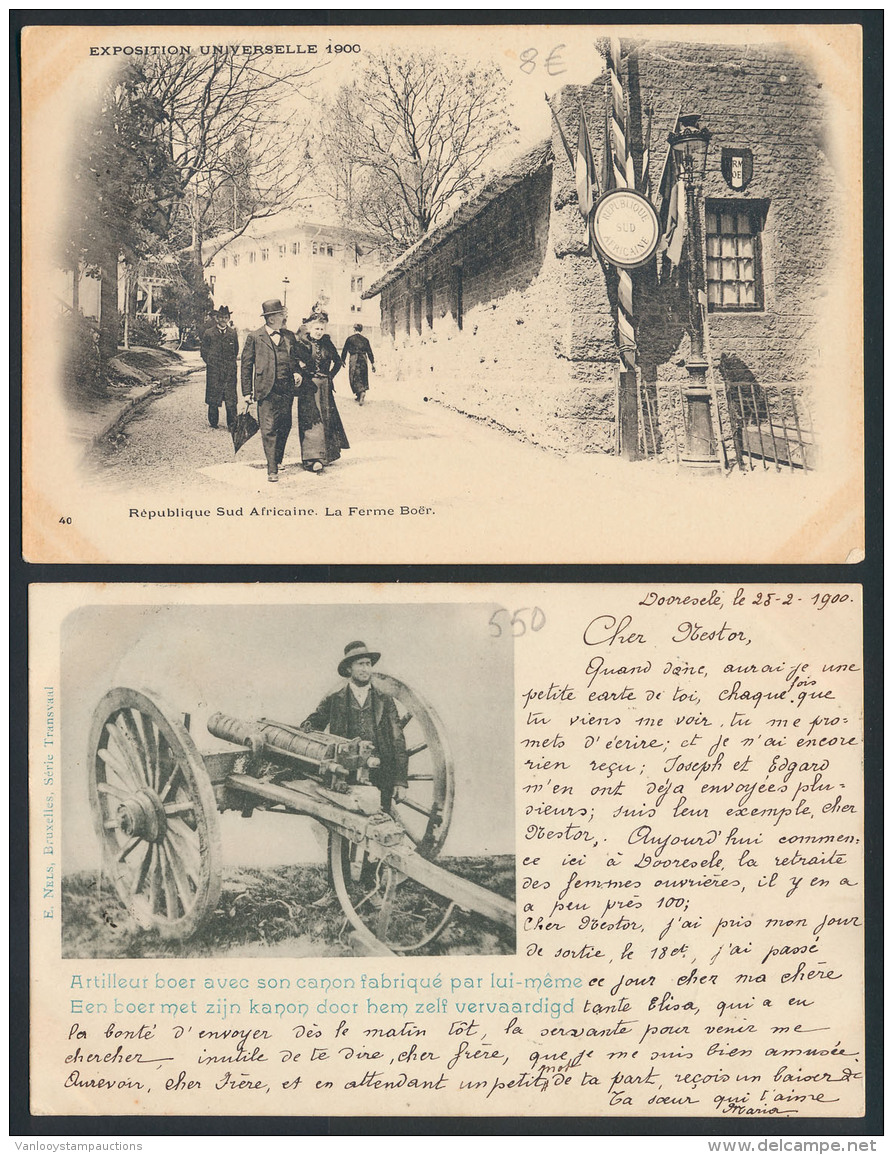 EXPOSITION UNIVERSELLE 1900
8€
RÉPUBLIQUE
SUD
AFRICAINE
40
République Sud Africaine. La Ferme Boër.
550
E. NELS, Bruxelles, Série Transvaal
Artilleur boer avec son canon fabriqué par lui-même
Een boer met zijn kanon door hem zelf vervaardigd
Dooresele, le 25-2-1900.
Cher Nestor,
Quand donc, aurai-je une
petite carte de toi, chaque fois que
tu viens me voir, tu me pro=
mets d'écrire; et je n'ai encore
rien reçu; Joseph et Edgard
m'en ont déja envoyées plu=
sieurs; suis leur exemple, cher
Nestor,. Aujourd'hui commen=
ce ici à Dooresele, la retraite
des femmes ouvrières, il y en a
a peu près 100;
Cher Nestor, j'ai pris mon jour
de sortie, le 18 ct, j'ai passé
ce jour cher ma chère
tante Elisa, qui a eu
la bonté d'envoyer dès le matin tôt, la servante pour venir me
chercher, inutile de te dire, cher frère, que je me suis bien amusée.
Aurevoir, cher Frère, et en attendant un petit mot de ta part, reçois un baiser de
Ta sœur qui t'aime
Maria.
Vanlooystampauctions
delcampe.net